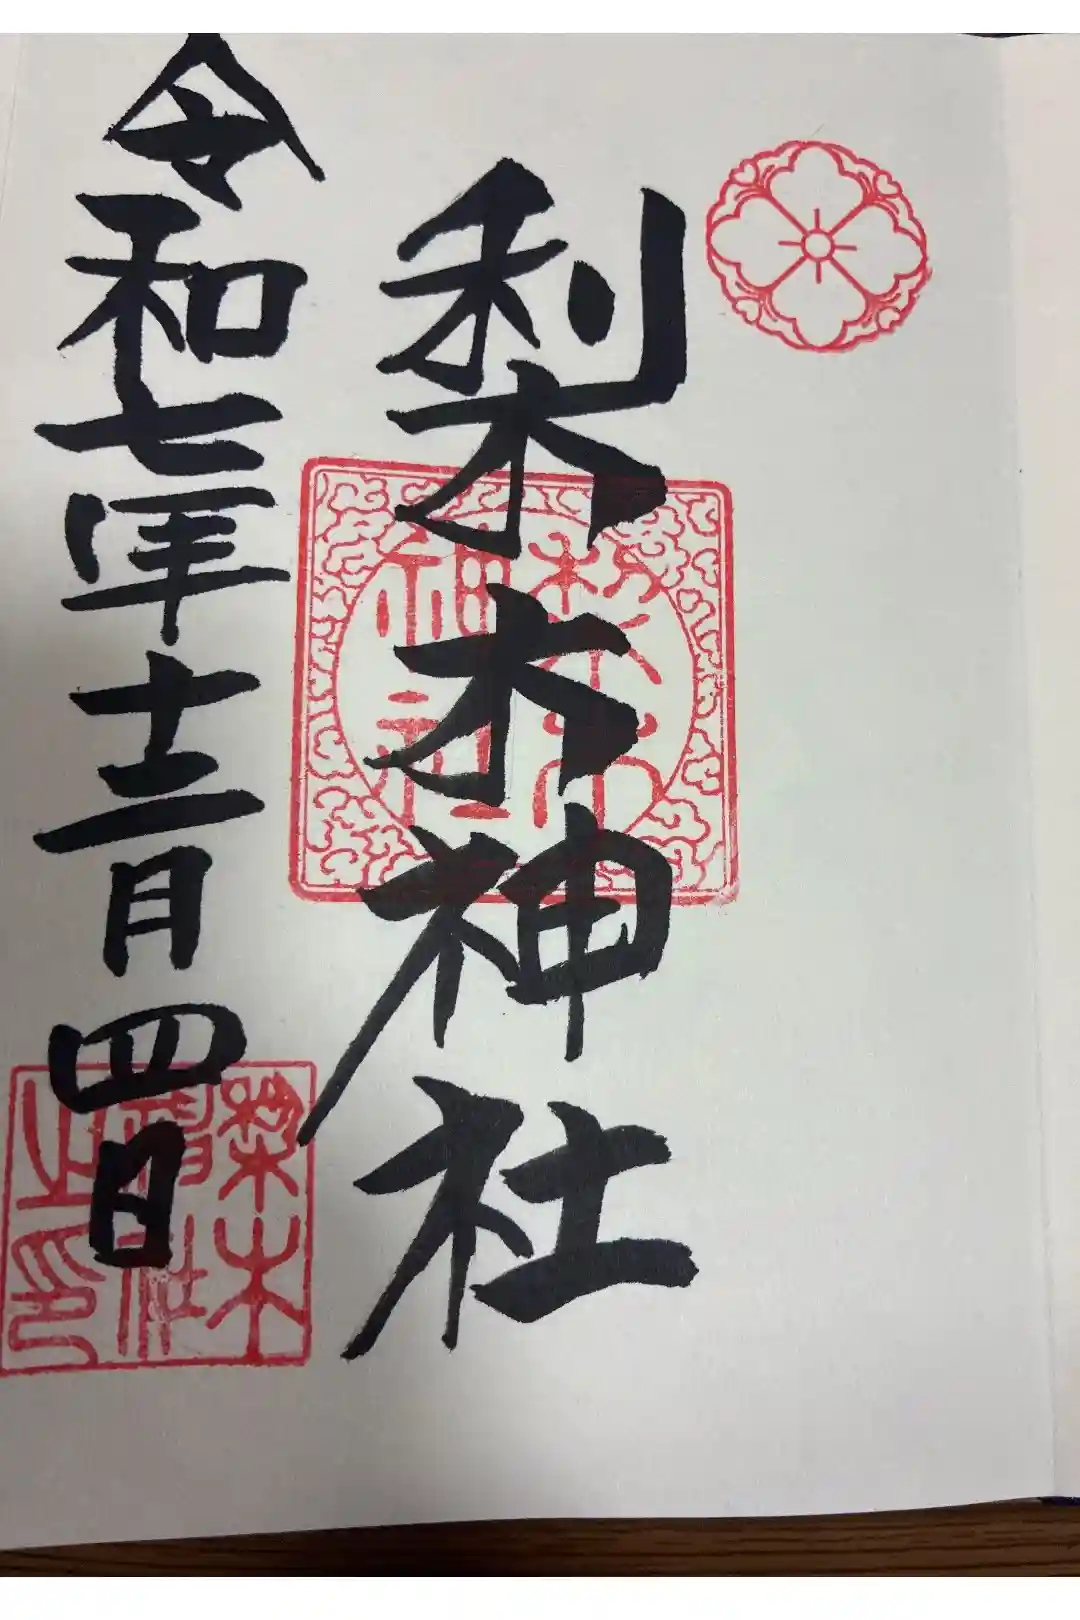 梨木神社
梨木
神社
令和七年十二月四日
梨木
神社
之印